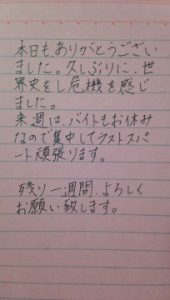 本日も、ありがとうござい
ました。久しぶりに、世
界史をし危機を感じ
ました。
来週は、バイトもお休み
なので集中してラストスパ
ート頑張ります。
残り一週間、よろしく
お願い致します。